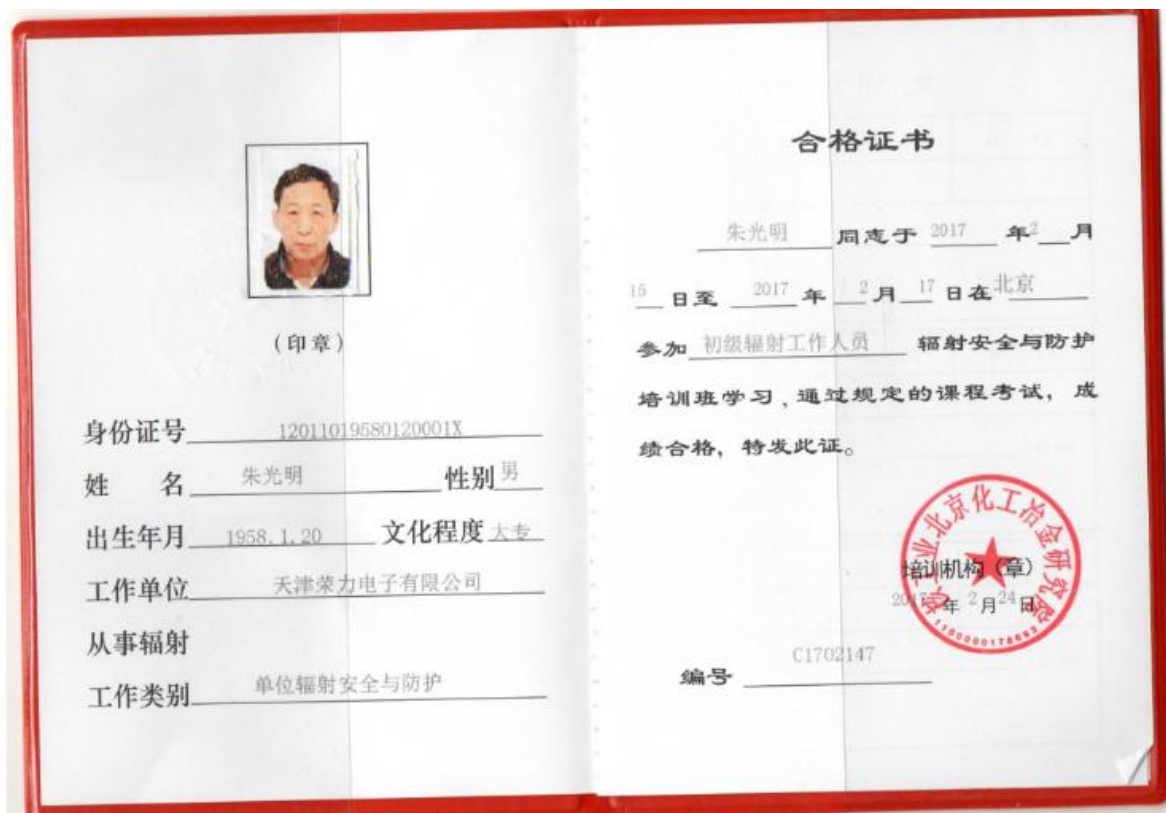 (印章)
身份证号 12011019580120001X
姓 名 朱光明 性别 男
出生年月 1958.1.20 文化程度 大专
工作单位 天津荣力电子有限公司
从事辐射
工作类别 单位辐射安全与防护
合格证书
朱光明 同志于 2017 年 2 月
15 日至 2017 年 2 月 17 日在 北京
参加 初级辐射工作人员 辐射安全与防护
培训班学习,通过规定的课程考试,成
绩合格,特发此证。
核工业北京化工冶金研究院
培训机构(章)
2017 年 2 月 24 日
编号 C1702147